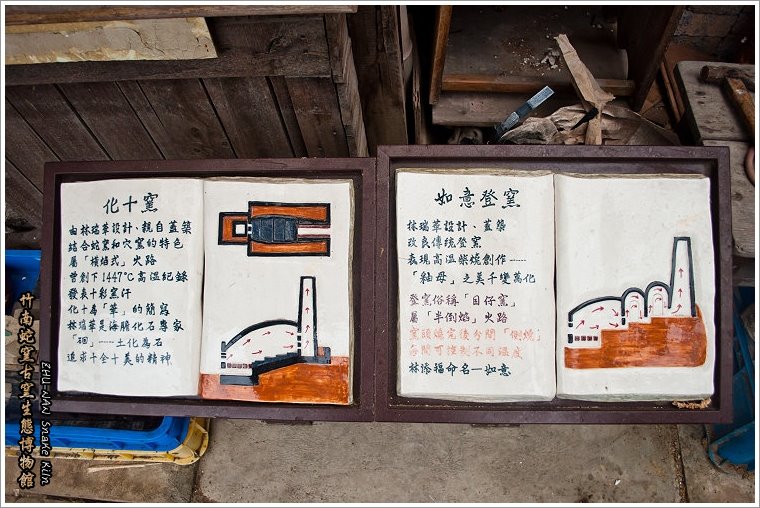 化十窯
由林瑞華設計、親自蓋築
結合蛇窯和穴窯的特色
屬「橫焰式」火路
曾創下1447°C高溫紀錄
發表十彩窯汗
化十為「華」的簡寫
林瑞華是海膽化石專家
「硘」……土化為石
追求十全十美的精神
如意登窯
林瑞華設計、蓋築
改良傳統登窯
表現高溫柴燒創作……
「釉母」之美千變萬化
登窯俗稱「目仔窯」
屬「半倒焰」火路
窯頭燒完後分間「側燒」
每間可控制不同溫度
林添福命名—如意
竹南蛇窯古窯生態博物館
ZHU-NAN Snake Kiln